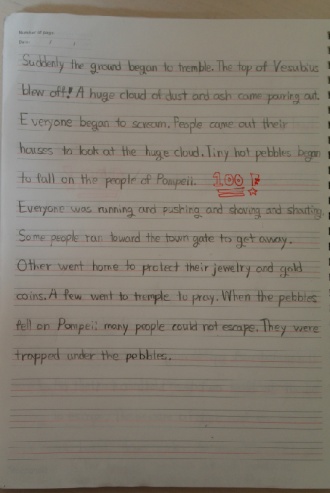 Number of Days
Date / /
Suddenly the ground began to tremble. The top of Vesubius
blew off! A huge cloud of dust and ash came pouring out.
Everyone began to scream. People came out their
houses to look at the huge cloud. Tiny hot pebbles began
to fall on the people of Pompeii. 100
Everyone was running and pushing and shoving and shouting
Some people ran toward the town gate to get away.
Other went home to protect their jewelry and gold
coins. A few went to temple to pray. When the pebbles
fell on Pompeii many people could not escape. They were
trapped under the pebbles.